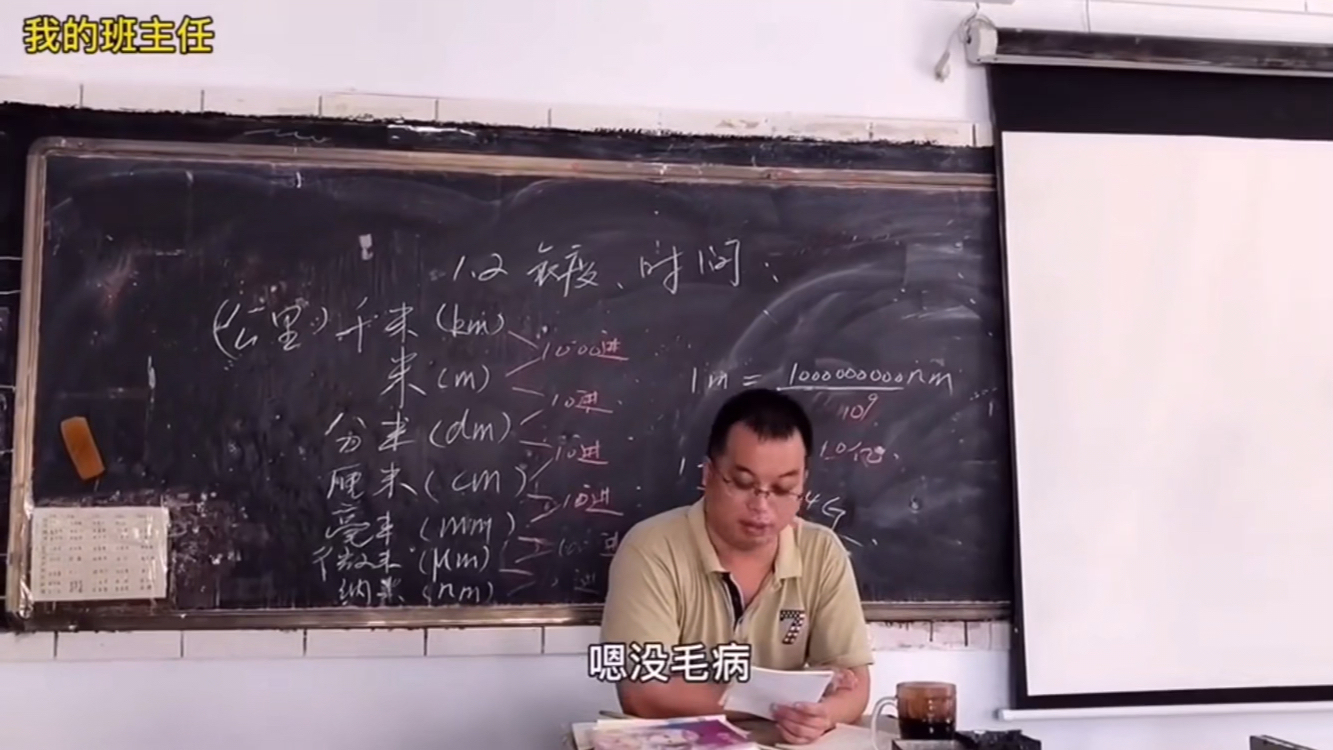 我的班主任
1.2 长度、时间:
(公里)千米(km)
1000进
米(m)
10进
分米(dm)
10进
厘米(cm)
10进
毫米(mm)
微米(μm)
纳米(nm)
1m = 1000000000nm
10⁹
10亿.
4G
7
嗯没毛病